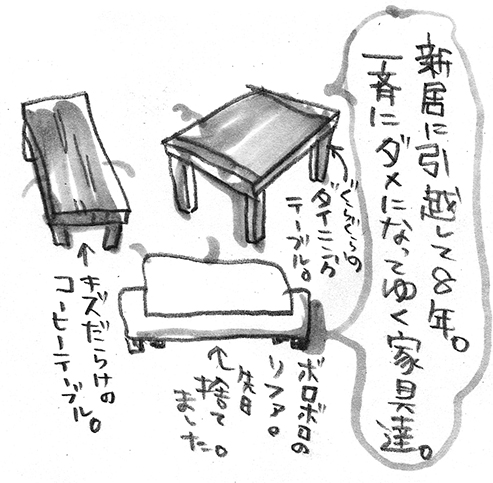 新居に引越して8年。
一斉にダメになってゆく家具達。
ぐらぐらの
ダイニング
テーブル。
ボロボロの
ソファ。
先日
捨て
ました。
キズだらけの
コーヒーテーブル。